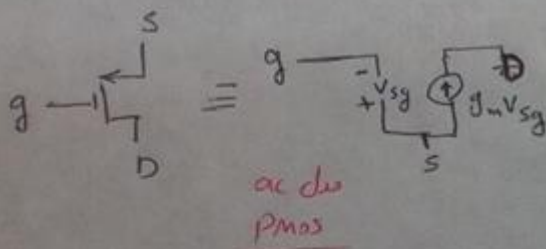 S
g
D
≡
g
- V_sg +
g_m V_sg
D
S
ac
PMOS